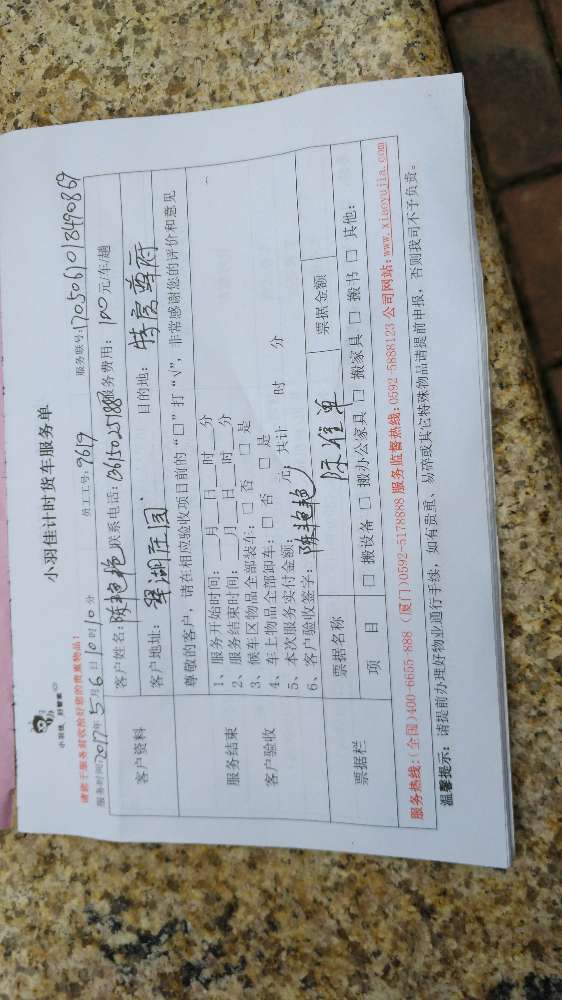 小羽佳，好管家
小羽佳计时货车服务单
请您于服务前收检好您的贵重物品！
服务联号:1705061013490869
服务时间:2017年5月6日10时10分
员工工号:9619
客户资料
客户姓名:陈艳艳 联系电话:0615025188 服务费用:100元/车/趟
客户地址: 翠湖庄园 目的地: 特房尊府
服务结束
客户验收
尊敬的客户，请在相应验收项目前的“□”打“√”，非常感谢您的评价和意见
1、服务开始时间：__月__日__时__分
2、服务结束时间：__月__日__时__分
3、候车区物品全部装车：□ 否 □ 是
4、车上物品全部卸车：□ 否 □ 是
5、本次服务实付金额： 元；共计 时 分
6、客户验收签字：陈艳艳
票据栏
票据名称 票据金额
项 目 □ 搬设备 □ 搬办公家具 □ 搬家具 □ 搬书 □ 其他:
服务热线:(全国)400-6655-888 (厦门)0592-5178888 服务监督热线:0592-5888123 公司网站:www.xiaoyujia.com
温馨提示：请提前办理好物业通行手续，如有贵重、易碎或其它特殊物品请提前申报，否则我司不予负责。